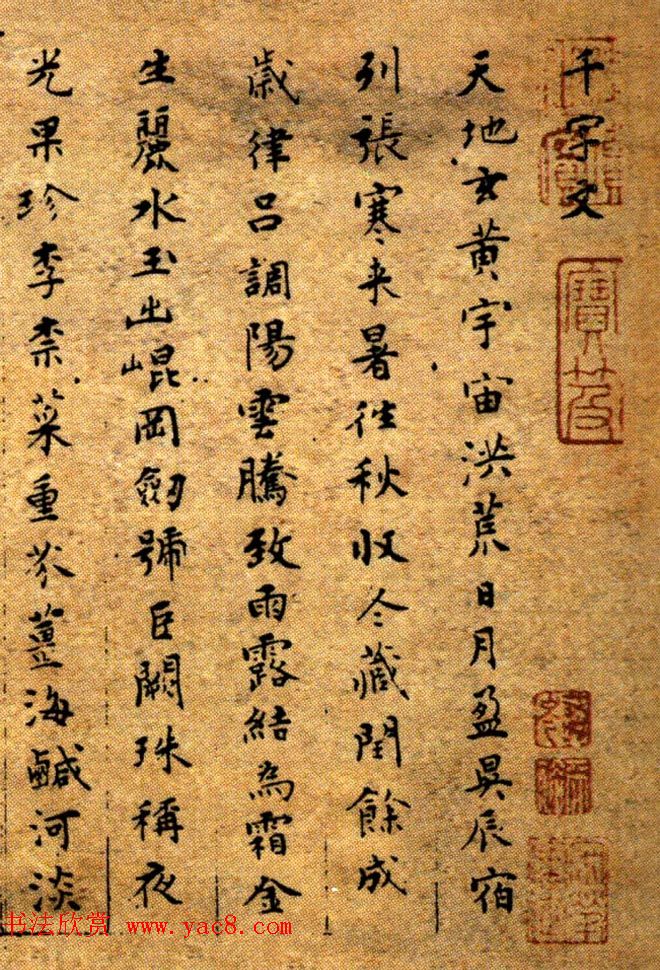 千字文
天地玄黄宇宙洪荒日月盈昃辰宿
列張寒来暑往秋收冬藏閏餘成
歲律吕調陽雲騰致雨露結為霜金
生麗水玉出崐岡劒號巨闕珠稱夜
光果珍李柰菜重芥薑海鹹河淡
书法欣赏 www.yac8.com